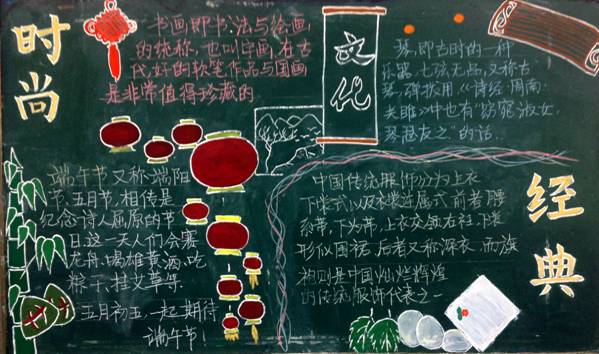 时尚
书画即书法与绘画
的统称,也叫字画,在古
代,好的软笔作品与国画
是非常值得珍藏的
文化
琴,即古时的一种
乐器,七弦无品,又称古
琴,弹拨用《诗经·周南·
关雎》中也有“窈窕淑女,
琴瑟友之”的话..
端午节又称端阳
节,五月节,相传是
纪念诗人屈原的节
日这一天人们会赛
龙舟,喝雄黄酒,吃
粽子、挂艾草等.
五月初五,一起期待
端午节!
中国传统服饰分为上衣
下裳式以及衣裳连属式,前者腰
系带,下为蒂,上衣交领右衽,下裳
形似围裙.后者又称深衣.而旗
袍则是中国灿烂辉煌
的传统服饰代表之一
经典